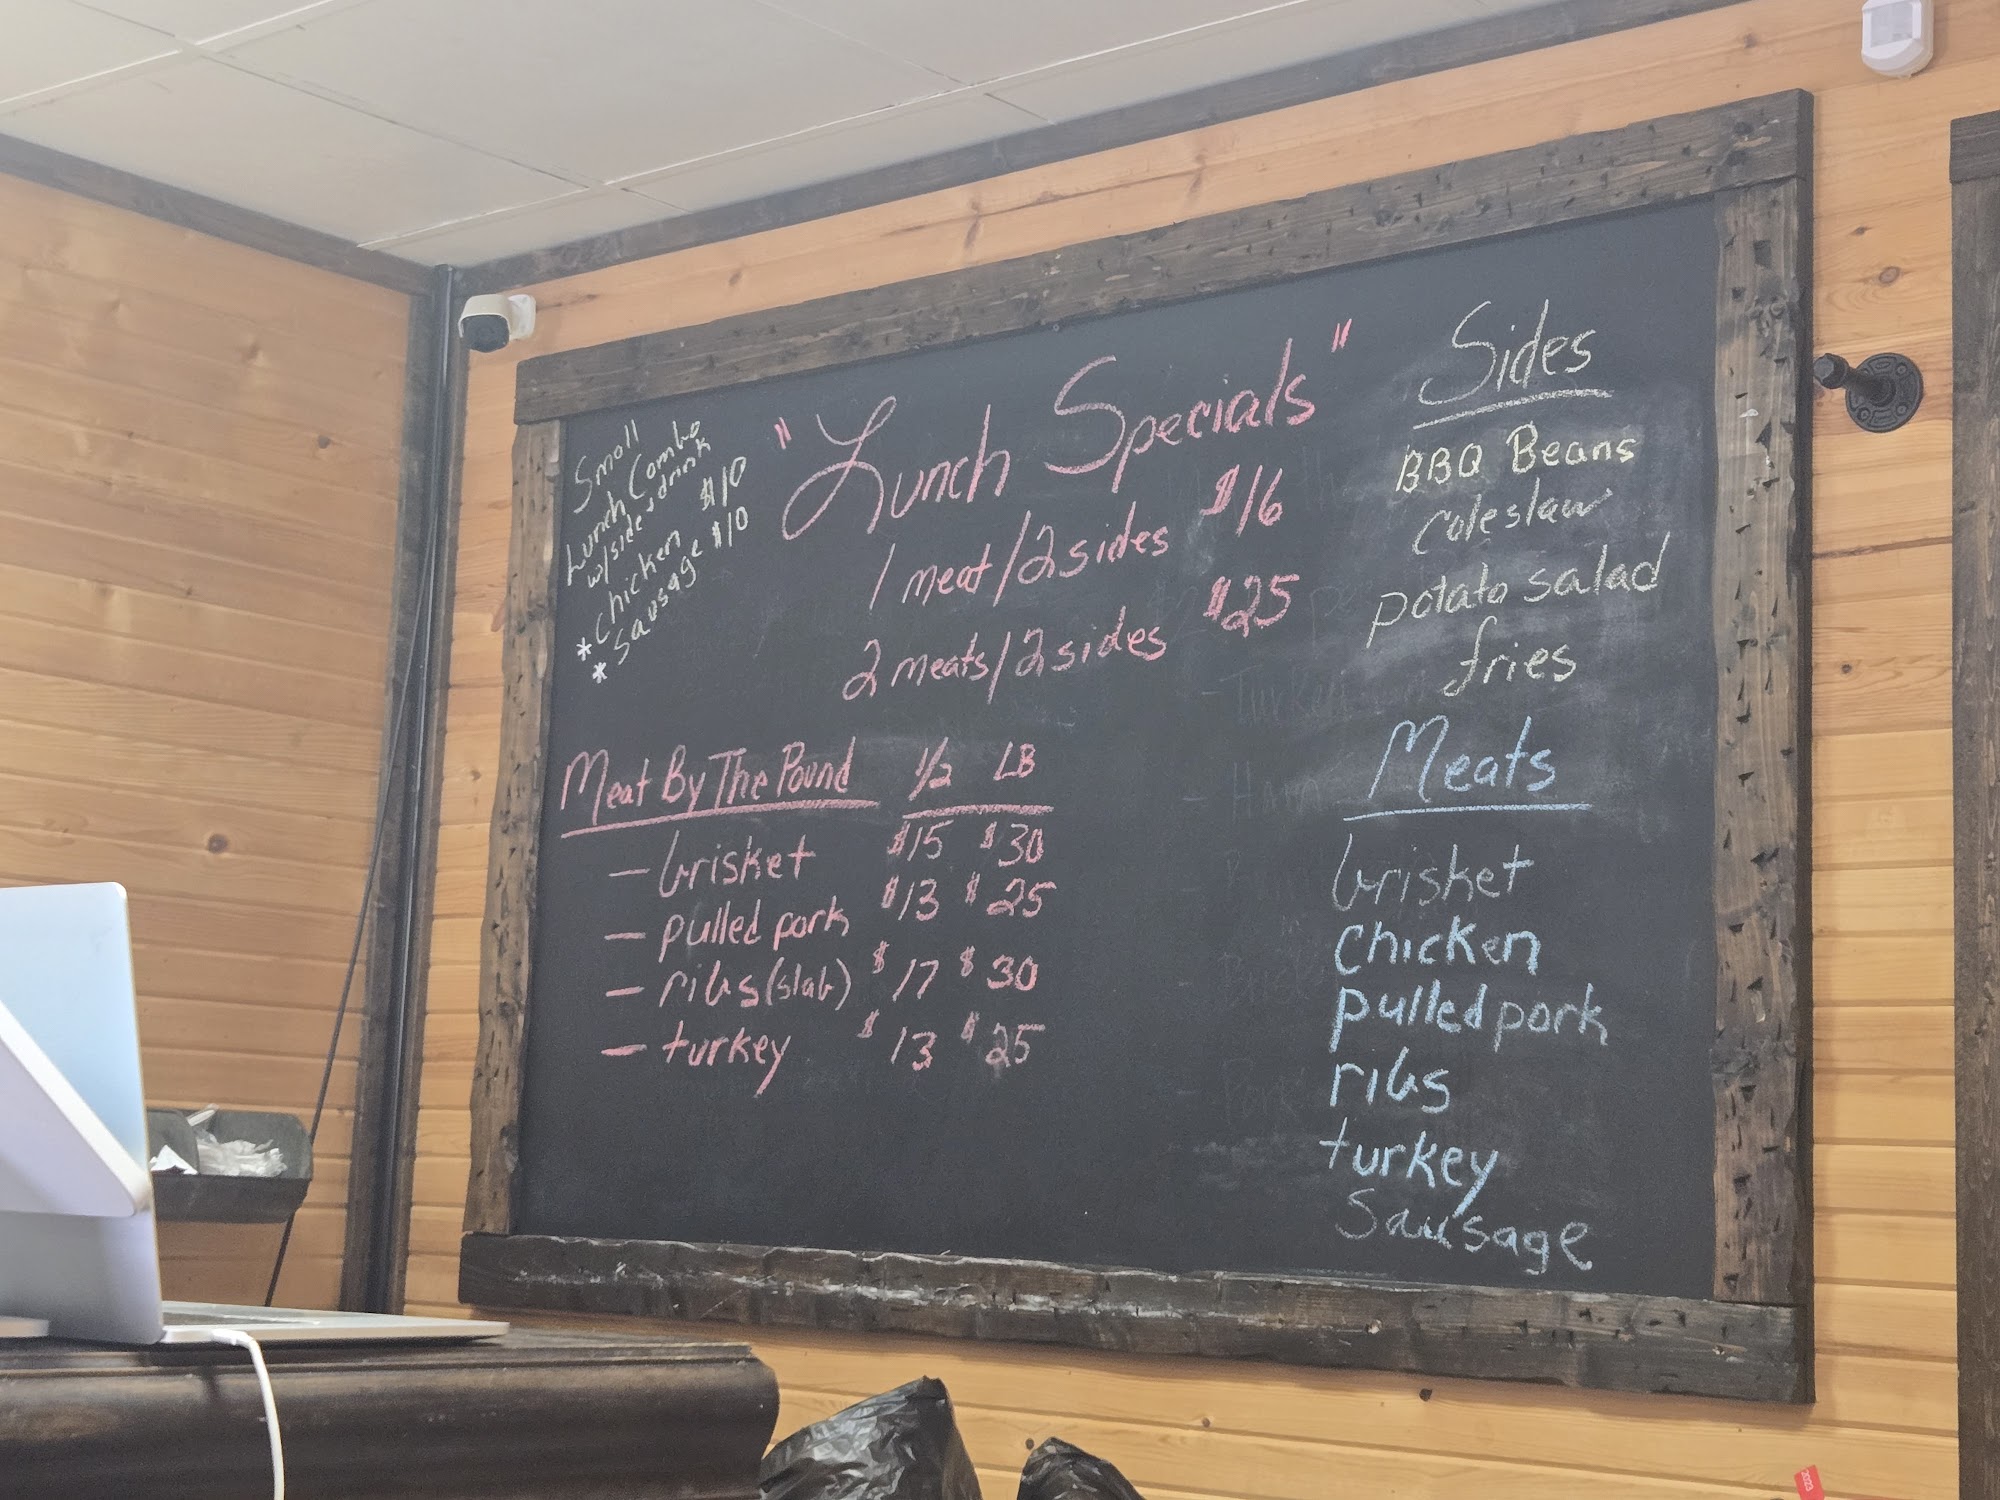 Small
Lunch Combo
w/side & drink
* chicken $10
* sausage $10
"Lunch Specials"
1 meat/2 sides $16
2 meats/2 sides $25
Meat By The Pound 1/2 LB
— brisket $15 $30
— pulled pork $13 $25
— ribs (slab) $17 $30
— turkey $13 $25
Sides
BBQ Beans
coleslaw
potato salad
fries
Meats
brisket
chicken
pulled pork
ribs
turkey
Sausage
2023